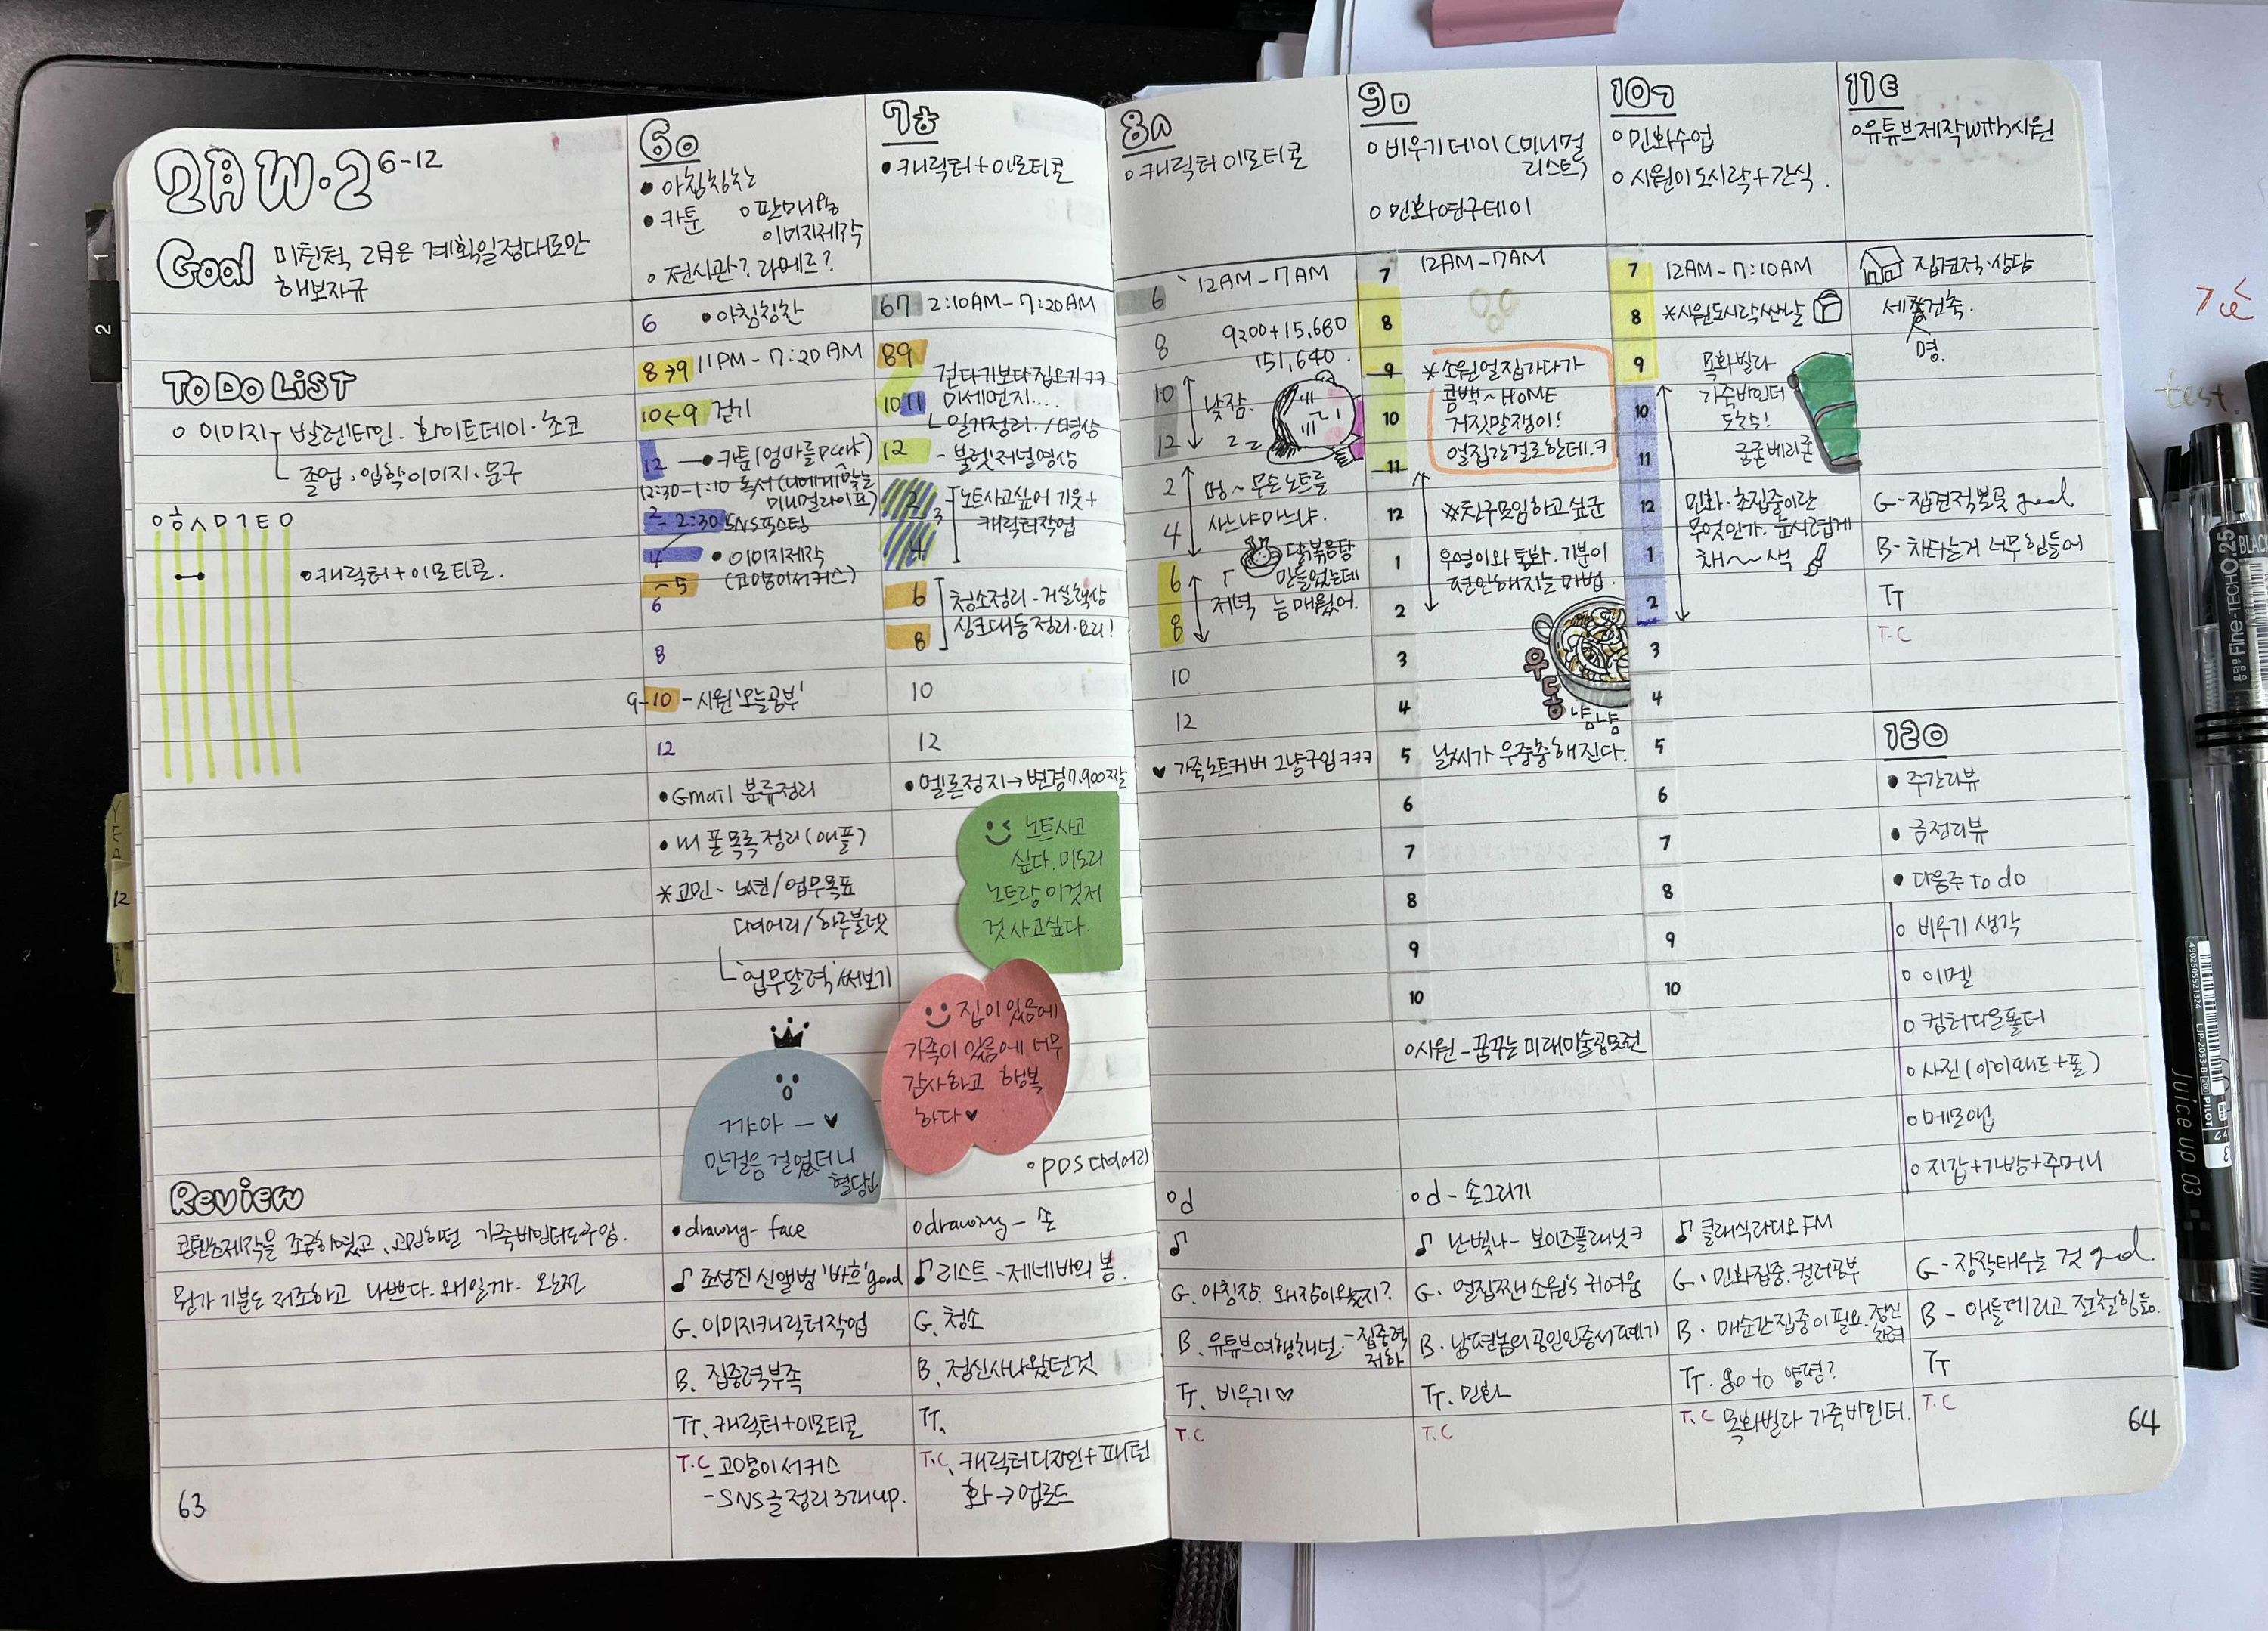 2月 W.2 6-12
Goal 미친척, 2月은 계획일정대로만
해보자규
TO DO LIST
o 이미지 - 발렌타인. 화이트데이. 초코
졸업. 입학이미지. 문구
ㅇ ㅎ ㅅ ㅁ ㄱ ㅌ ㅇ
• 캐릭터+이모티콘.
Review
콘텐츠제작을 조금하였고, 고민하던 가족바인더도구입.
뭔가 기분도 저조하고 나쁘다. 왜일까. 완전
63
6ㅇ
• 아침칭찬
• 카툰
o 판매용
이미지제작
o 전시관? 라메르?
6 • 아침칭찬
8→9 11PM - 7:20AM
10←9 걷기
12 → • 카툰(엄마를park)
12:30-1:10 독서(나에게맞는
미니멀라이프)
2 - 2:30 SNS포스팅
4 • 이미지제작
(고양이서커스)
~5
6
8
9-10 - 시원'오늘공부'
12
• Gmail 분류정리
• 내 폰목록정리(애플)
*고민 - 노션/업무목표
다여어리/하루불렛
'업무달력'써보기
꺄아 — ♥
만걸음 걸었더니
• drawing - face
♪ 조성진 신앨범 '바흐' good
G. 이미지캐릭터작업
B. 집중력부족
TT. 캐릭터+이모티콘
T.C - 고양이서커스
- SNS글정리 3개up.
7ㅎ
• 캐릭터+이모티콘
67 2:10AM - 7:20AM
89
걷다기보다집오기ㅋㅋ
1011 미세먼지....
일기정리. /영상
12 - 불렛저널영상
2 3 노트사고싶어 기웃+
4 캐릭터작업
6 청소정리 - 거실책상
싱크대등정리.요리!
8
10
12
• 멜론정지→변경7,900짤
노트사고
싶다. 미도리
노트랑 이것저
것 사고싶다.
집이 있음에
가족이 있음에 너무
감사하고 행복
하다♥
o PDS다여어리
o drawing - 손
♪ 리스트 - 제네바의 봄.
G. 청소
B. 정신사나웠던것
TT.
T.C. 캐릭터디자인+패턴
화→업로드
8ㅅ
o 캐릭터이모티콘
6 12AM - 7AM
8 9200+15,680
151,640.
10 낮잠.
12 z z
2 멍~ 무슨노트를
4 사느냐마느냐.
닭볶음탕
6 만들었는데
저녁 늠매웠어.
8
10
12
♥ 가족노트커버 그냥구입ㅋㅋㅋ
o d
♪
G. 아침잠. 왜잠이왔는지?
B. 유튜브여행채널. - 집중력
저하
TT. 비우기♡
T.C
9ㅁ
o 비우기데이(미니멀
리스트)
o 민화연구데이
7 12AM - 7AM
8
9 *소원얼집가다가
콤백~HOME
10 거짓말쟁이!
얼집간걸로한데.ㅋ
11
12 *친구모임하고싶군
1 우영이와 통화. 기분이
편안해지는 마법.
2
우동
냠냠
3
4
5 날씨가 우중충해진다.
6
7
8
9
10
o 시원 - 꿈꾸는 미래미술공모전
o d - 손그리기
♪ 난빛나 - 보이즈플래닛ㅋ
G. 얼집짼 소원's 귀여움
B. 남편놈의공인인증서떼기
TT. 민화
T.C
10ㄱ
o 민화수업
o 시원이도시락+간식.
7 12AM - 7:10AM
8 *시원도시락싼날
9 목화빌라
가족바인더
10 도착!
굳굳베리굳
11
12 민화. 초집중이란
무엇인가. 눈시럽게
1 채~~색
2
3
4
5
6
7
8
9
10
♪ 클래식라디오FM
G. 민화집중. 컬러공부
B. 매순간집중이필요.정신
차려
TT. go to 양평?
T.C 목화빌라 가족바인더.
11ㅌ
o 유튜브제작with시원
집견적.상담
세종건축.
명.
G - 집견적본것 good
B - 차타는거 너무힘들어
TT
T.C
12ㅇ
• 주간리뷰
• 금전리뷰
• 다음주 To do
o 비우기 생각
o 이멜
o 컴터다운폴더
o 사진(아이패드+폰)
o 메모앱
o 지갑+가방+주머니
G - 장작태우는 것 good.
B - 애들데리고 전철힘듦.
TT
T.C
64
test
BLACK
Fine-TECH 0.25
Juice up 03
PILOT
4902505521324
LJP-20S3-B
1
2
YEA
12